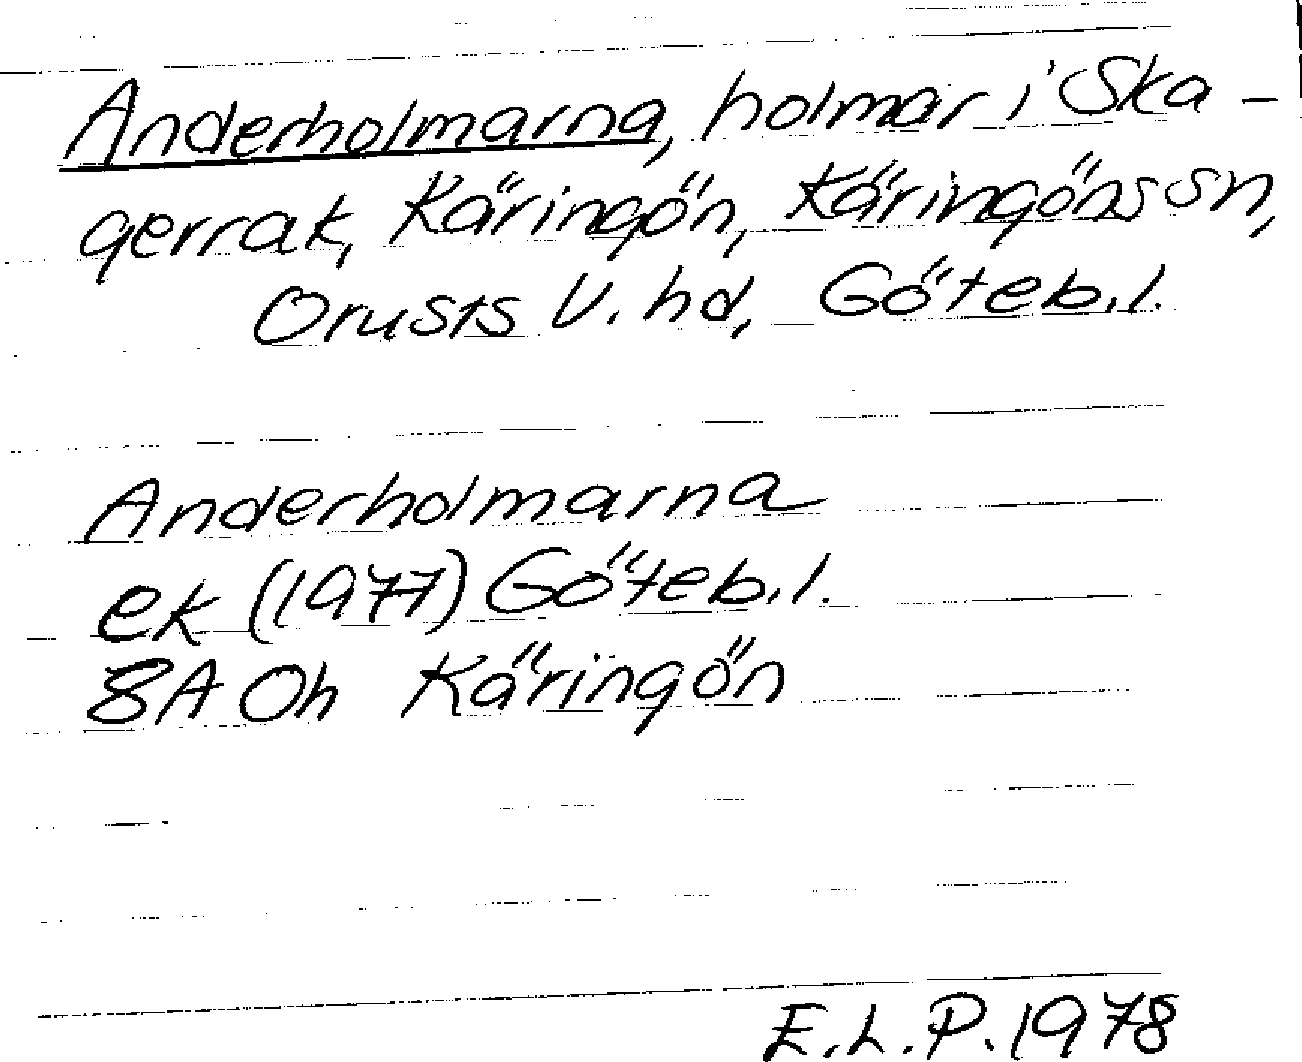 Anderholmarna, holmar i Ska-
gerrak, Käringön, Käringöns sn,
Orusts V. hd, Göteb.l.
Anderholmarna
ek (1977) Göteb.l.
8A Oh Käringön
E.L.P. 1978